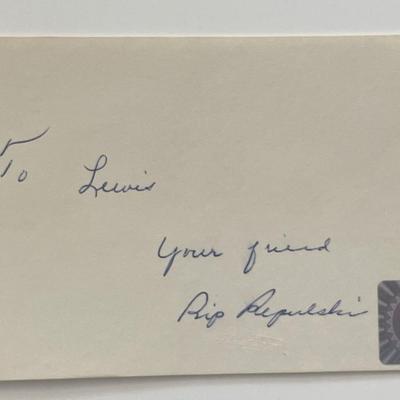 To Lewis
Your friend
Rip Repulski